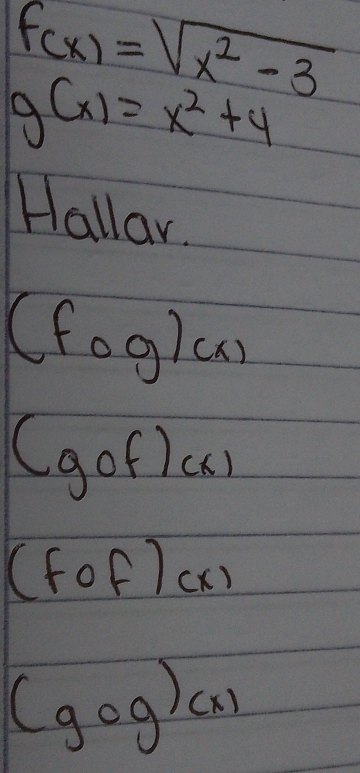 f(x) = √x² - 3
g(x) = x² + 4
Hallar.
(f o g)(x)
(g o f)(x)
(f o f)(x)
(g o g)(x)